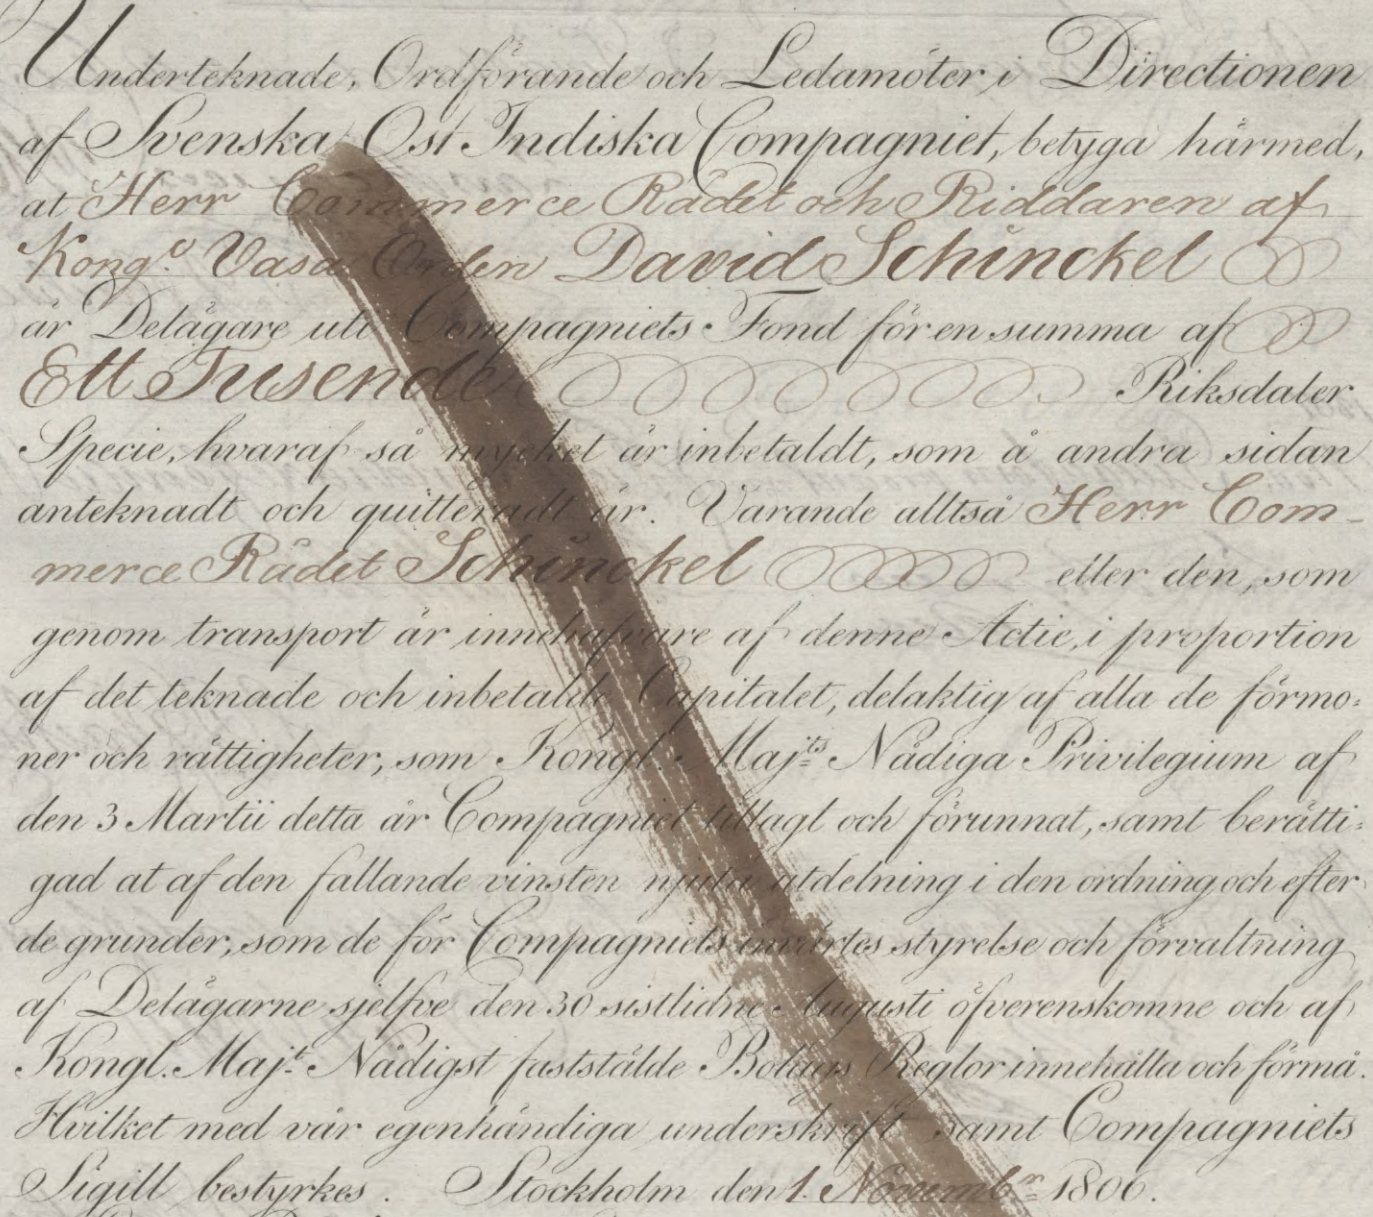 Underteknade, Ordförande och Ledamöter i Directionen
af Svenska Ost Indiska Compagniet, betyga härmed,
at Herr Commerce Rådet och Riddaren af
Kongl. Vasa Orden David Schinckel
är Delägare uti Compagniets Fond för en summa af
Ett Tusende Riksdaler
Specie, hvaraf så mycket är inbetaldt, som å andra sidan
anteknadt och quitteradt är. Varande alltså Herr Com-
merce Rådet Schinckel eller den, som
genom transport är innehafvare af denne Actie, i proportion
af det teknade och inbetalde Capitalet, delaktig af alla de förmo=
ner och rättigheter, som Kongl. Maj:ts Nådiga Privilegium af
den 3 Martii detta år Compagniet tillagt och förunnat, samt berätti=
gad at af den fallande vinsten njuta utdelning i den ordning och efter
de grunder, som de för Compagniets invärtes styrelse och förvaltning
af Delägarne sjelfve den 30 sistlidne Augusti öfverenskomne och af
Kongl. Maj:t Nådigst fastställde Bolags Reglor innehålla och förmå.
Hvilket med vår egenhändiga underskrift samt Compagniets
Sigill bestyrkes. Stockholm den 1. Novembr 1806.